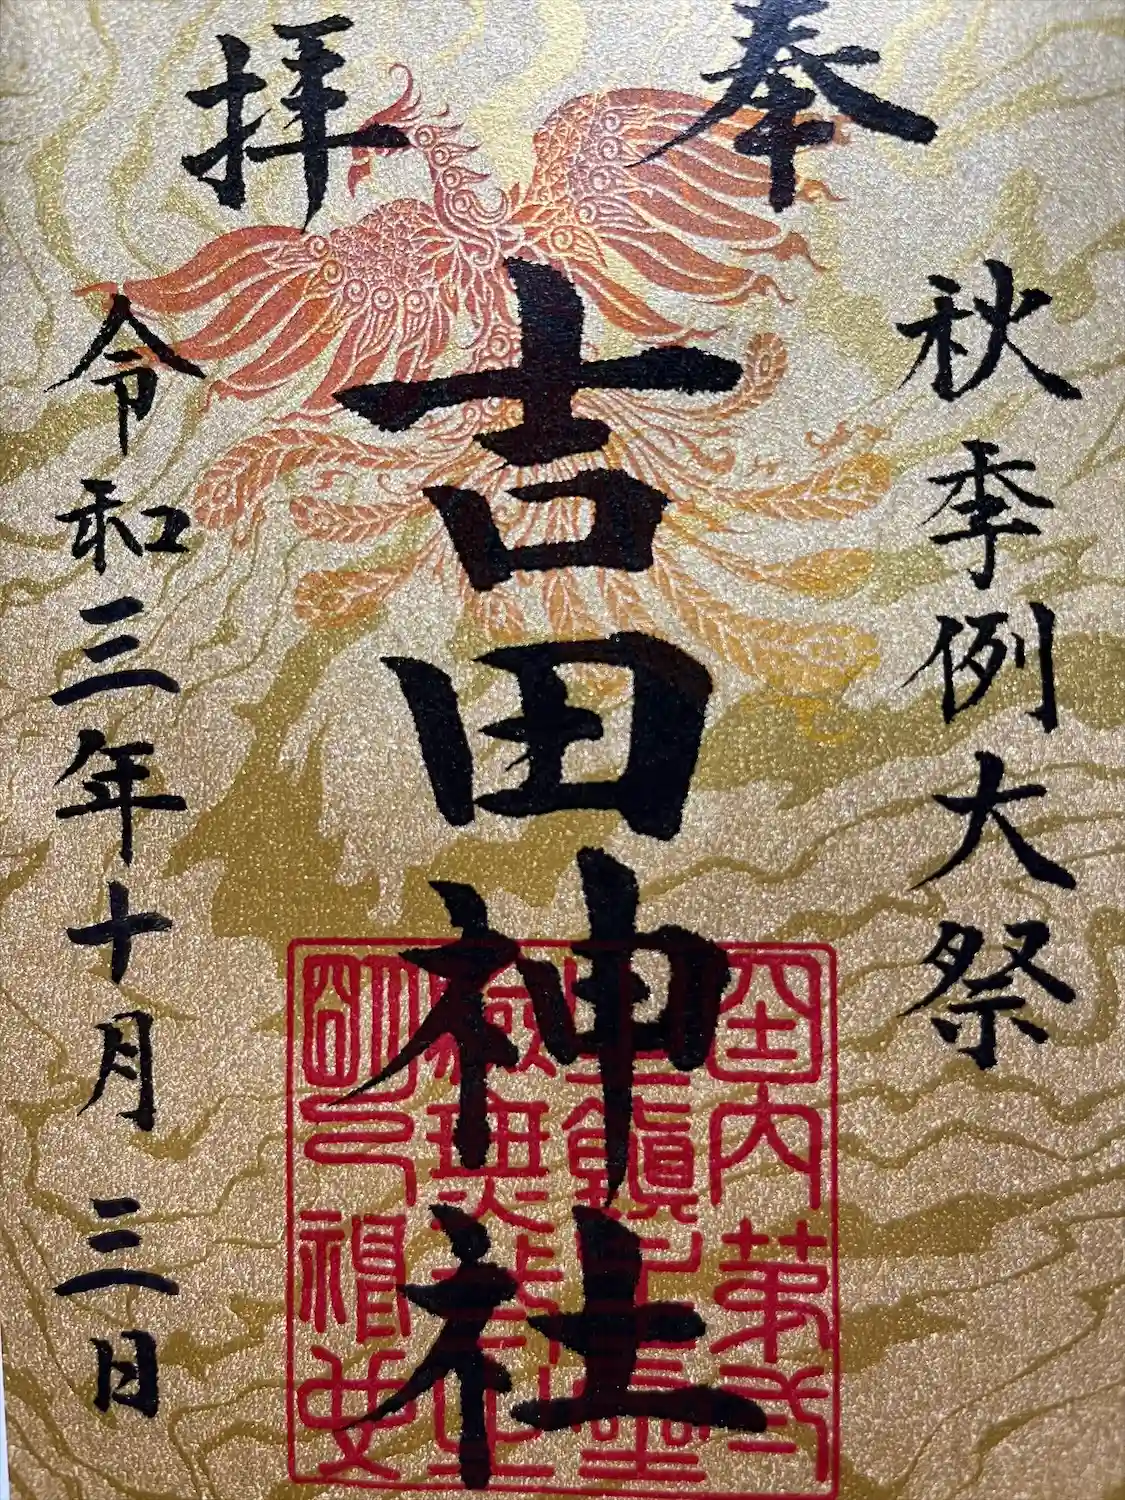 奉拝
秋季例大祭
吉田神社
令和三年十月 三日